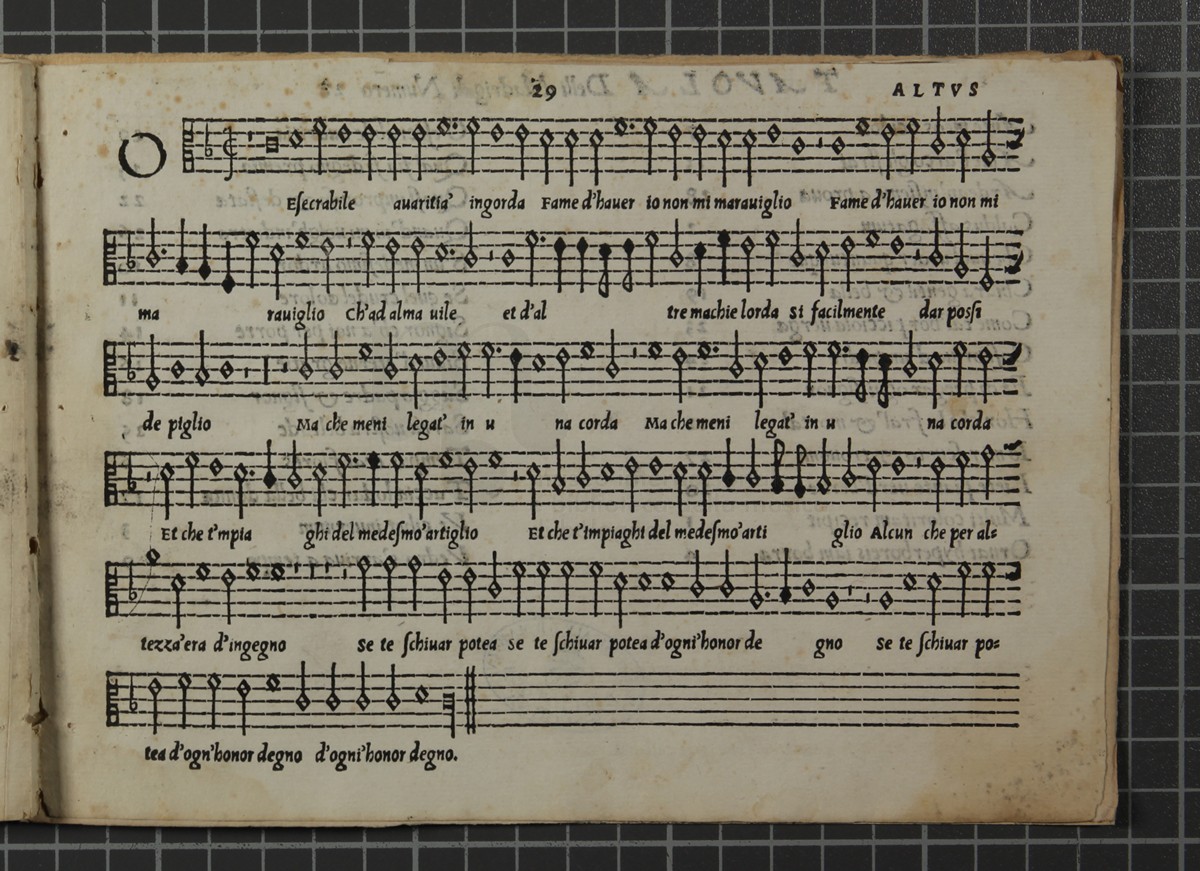 29 ALTVS
O
Eſecrabile auaritia' ingorda Fame d'hauer io non mi marauiglio Fame d'hauer io non mi
ma rauiglio Ch'ad alma uile et d'al tre machie lorda si facilmente dar poſſi
de piglio Ma che meni legat' in u na corda Ma che meni legat' in u na corda
Et che t'mpia ghi del medeſmo'artiglio Et che t'impiaghi del medeſmo'arti glio Alcun che per al=
tezza'era d'ingegno se te ſchiuar potea se te ſchiuar potea d'ogni'honor de gno se te ſchiuar po=
tea d'ogn'honor degno d'ogni'honor degno.